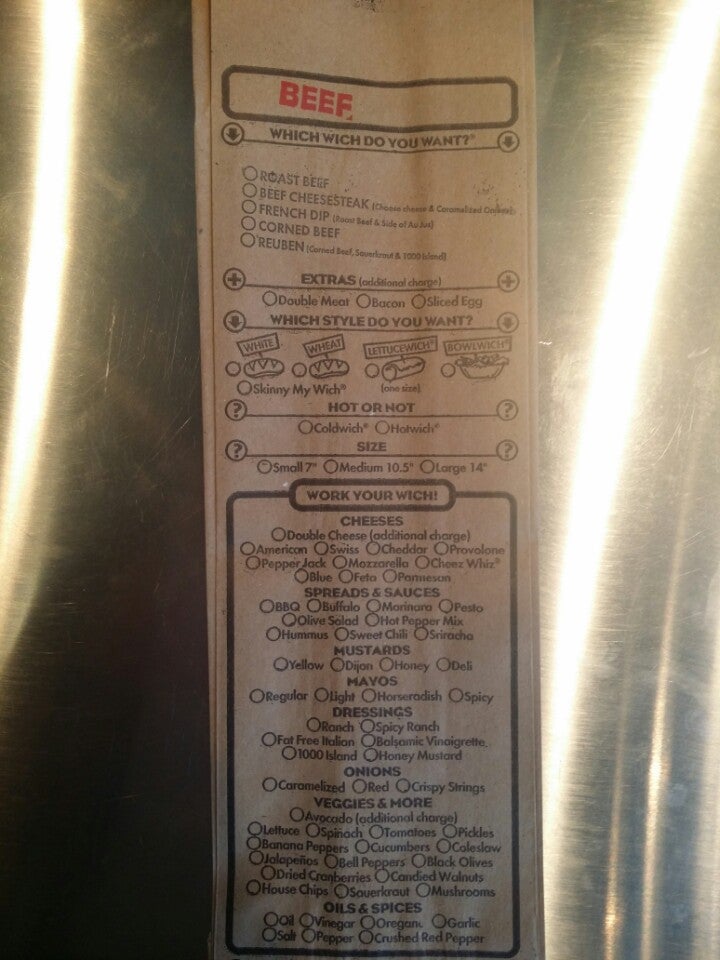 BEEF
WHICH WICH DO YOU WANT?®
ROAST BEEF
BEEF CHEESESTEAK (Choose cheese & Caramelized Onions)
FRENCH DIP (Roast Beef & Side of Au Jus)
CORNED BEEF
REUBEN (Corned Beef, Sauerkraut & 1000 Island)
EXTRAS (additional charge)
Double Meat Bacon Sliced Egg
WHICH STYLE DO YOU WANT?
WHITE WHEAT LETTUCEWICH® BOWLWICH®
Skinny My Wich® (one size)
HOT OR NOT
Coldwich® Hotwich®
SIZE
Small 7" Medium 10.5" Large 14"
WORK YOUR WICH!
CHEESES
Double Cheese (additional charge)
American Swiss Cheddar Provolone
Pepper Jack Mozzarella Cheez Whiz®
Blue Feta Parmesan
SPREADS & SAUCES
BBQ Buffalo Marinara Pesto
Olive Salad Hot Pepper Mix
Hummus Sweet Chili Sriracha
MUSTARDS
Yellow Dijon Honey Deli
MAYOS
Regular Light Horseradish Spicy
DRESSINGS
Ranch Spicy Ranch
Fat Free Italian Balsamic Vinaigrette
1000 Island Honey Mustard
ONIONS
Caramelized Red Crispy Strings
VEGGIES & MORE
Avocado (additional charge)
Lettuce Spinach Tomatoes Pickles
Banana Peppers Cucumbers Coleslaw
Jalapeños Bell Peppers Black Olives
Dried Cranberries Candied Walnuts
House Chips Sauerkraut Mushrooms
OILS & SPICES
Oil Vinegar Oregano Garlic
Salt Pepper Crushed Red Pepper